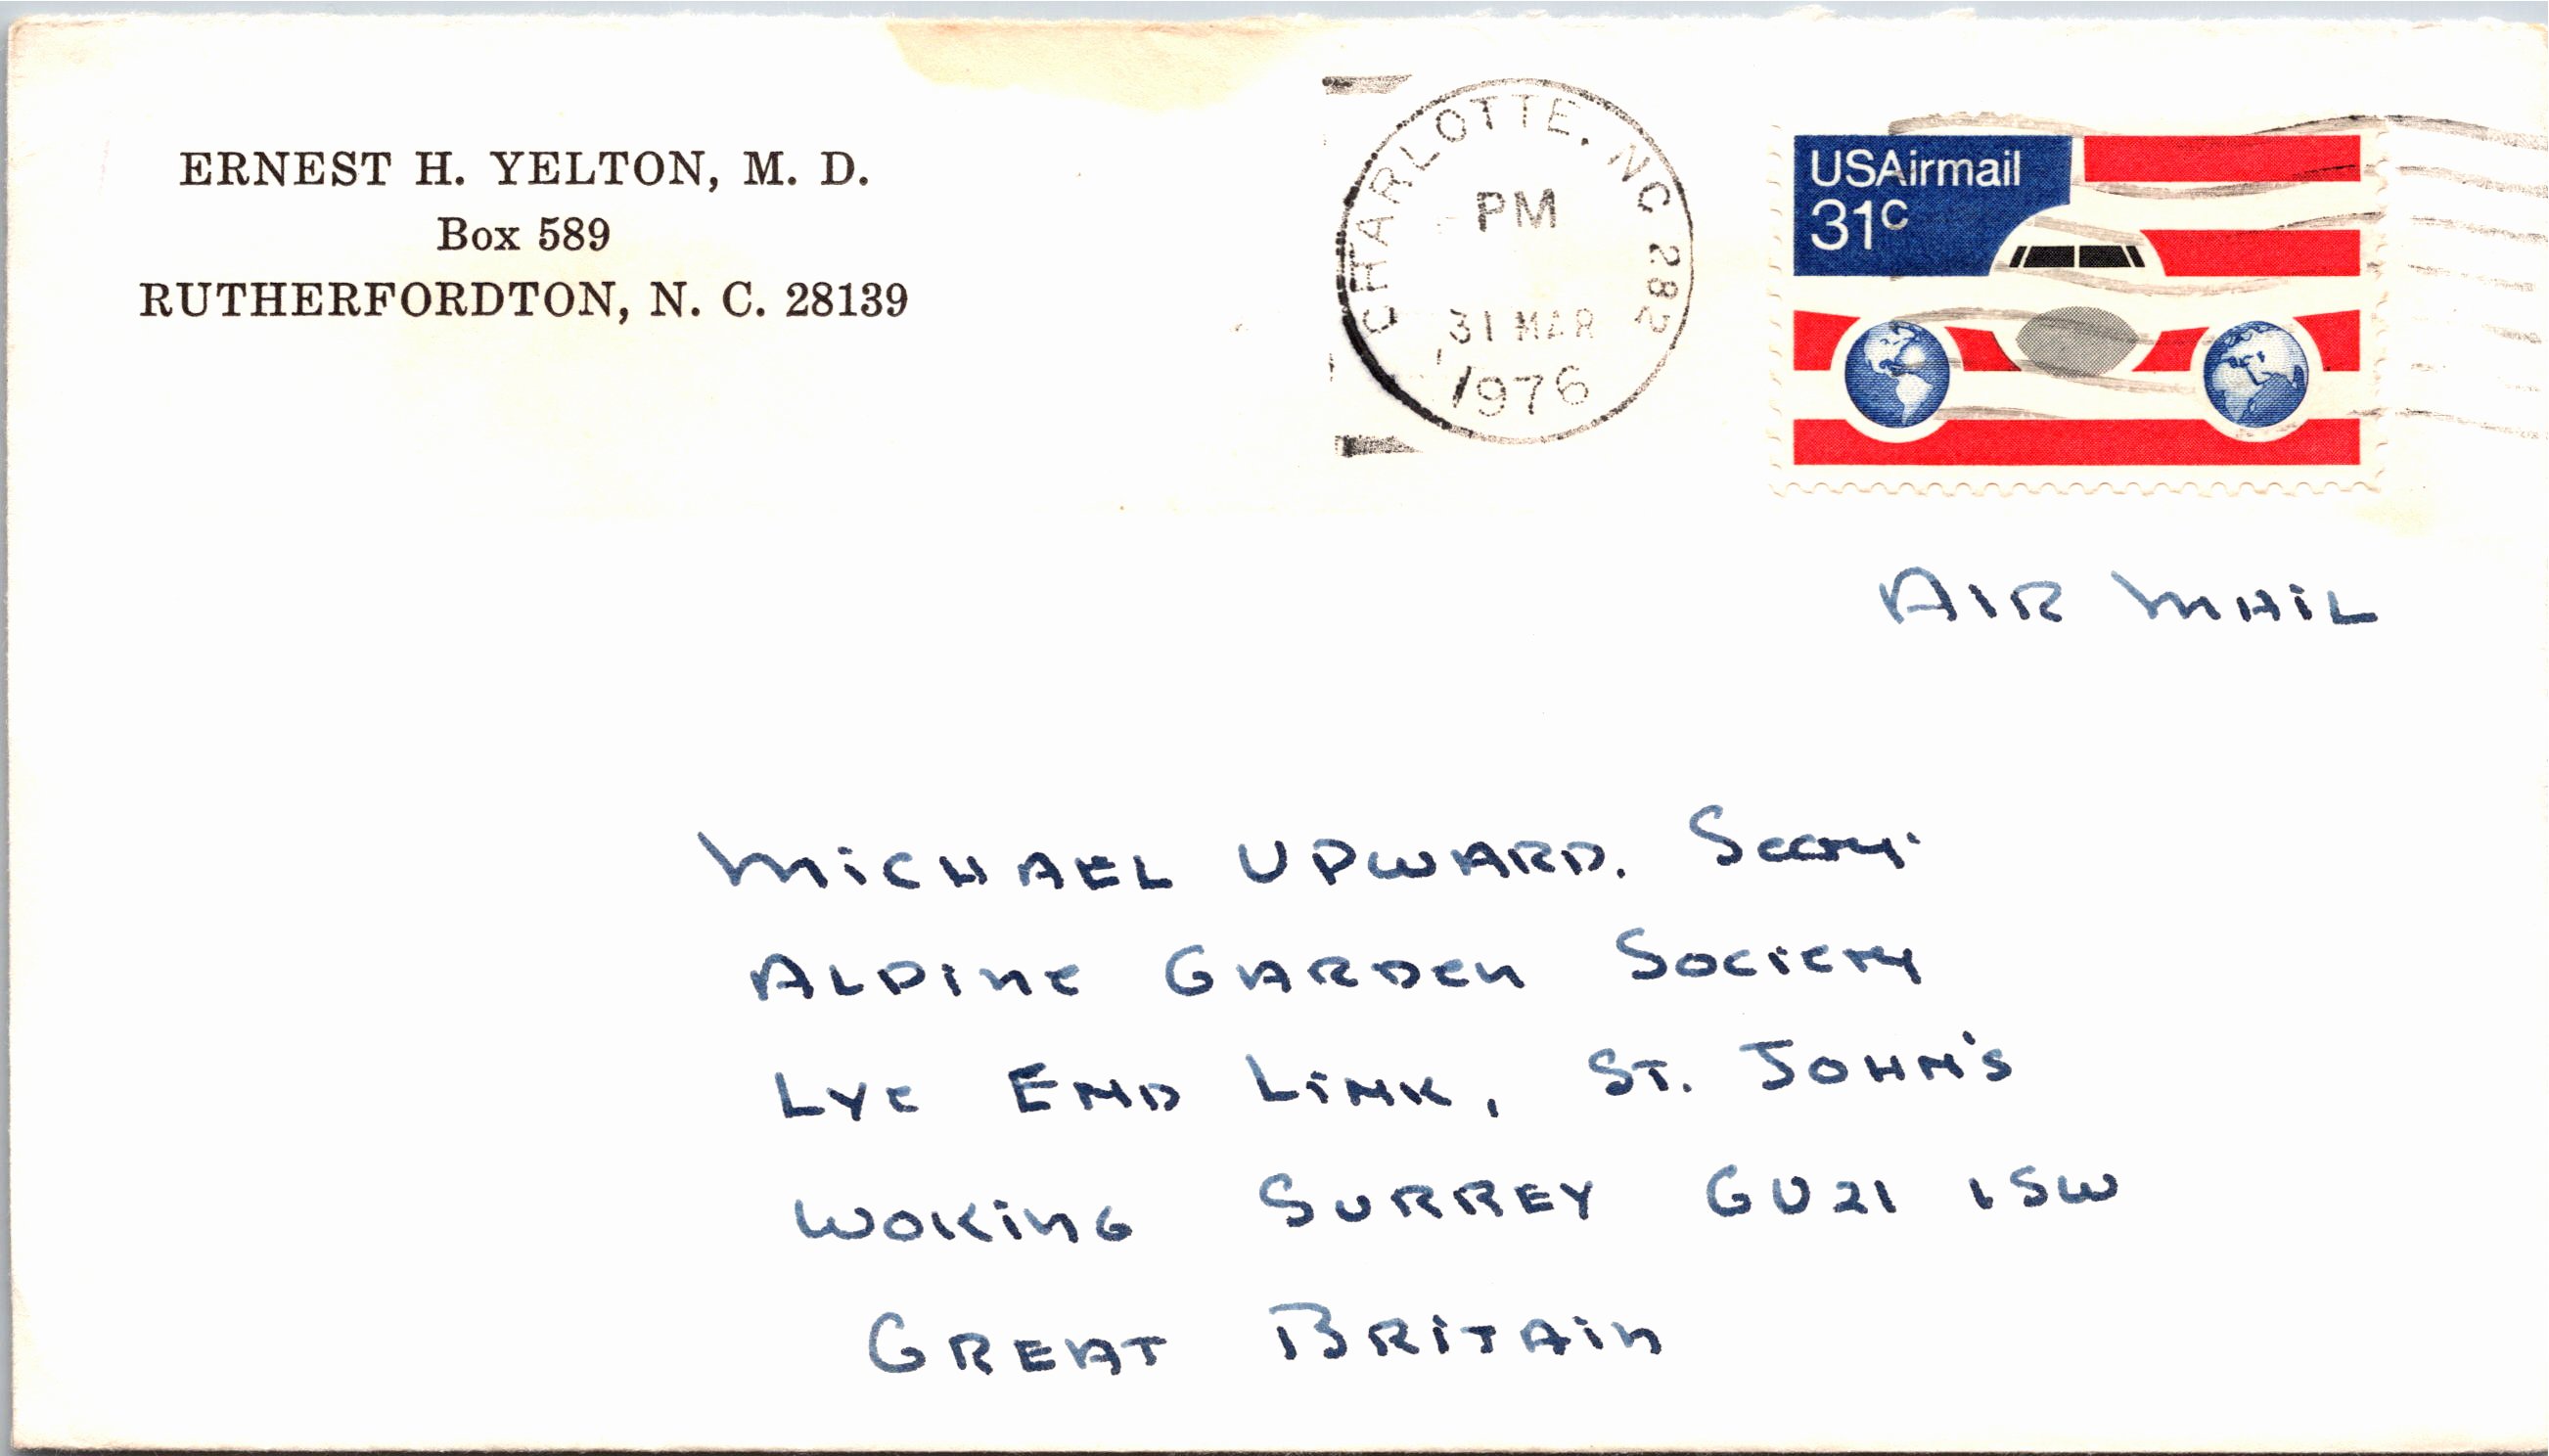 ERNEST H. YELTON, M. D.
Box 589
RUTHERFORDTON, N. C. 28139
CHARLOTTE, NC 282
PM
31 MAR
1976
USAirmail
31c
AIR MAIL
MICHAEL UPWARD. Secry.
ALPINE GARDEN SOCIETY
LYE END LINK, ST. JOHN'S
WOKING SURREY GU21 1SW
GREAT BRITAIN